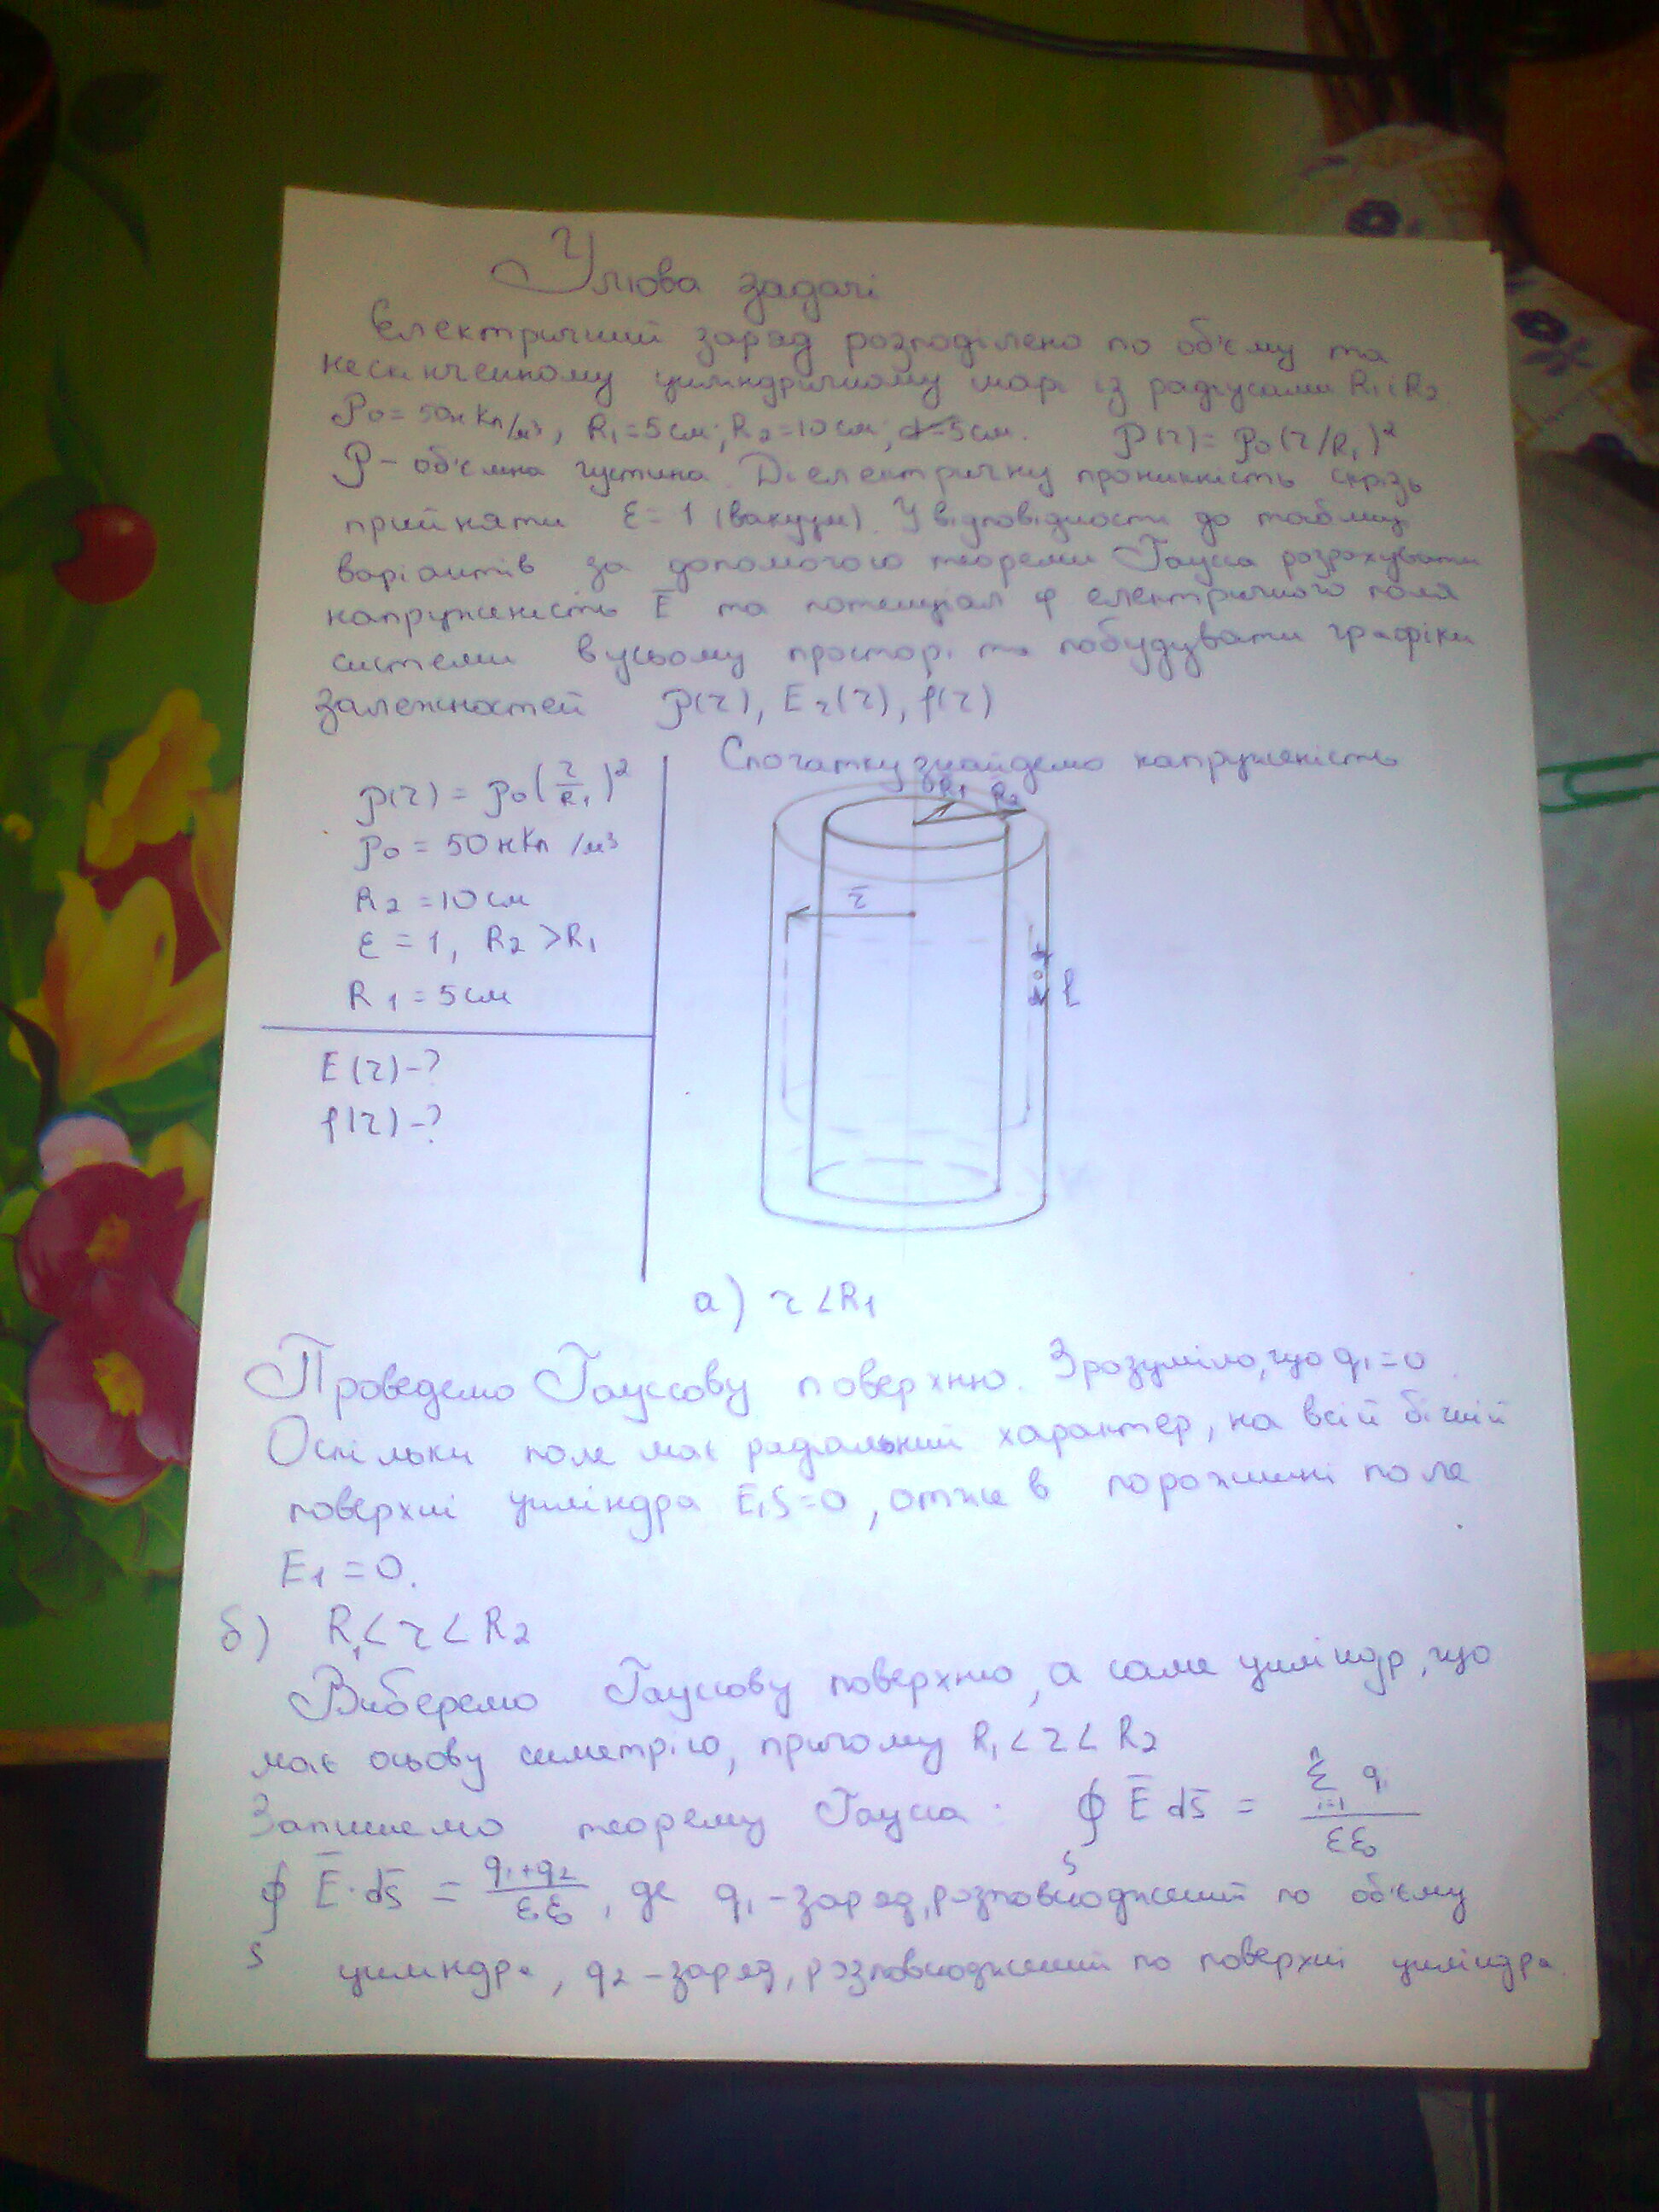 Умова задачі
Електричний заряд розподілено по об'єму та
нескінченному циліндричному шарі із радіусами R₁ і R₂
ρ₀ = 50 нКл/м³, R₁ = 5 см; R₂ = 10 см; d = 5 см. ρ(r) = ρ₀(r/R₁)²
ρ – об'ємна густина. Діелектричну проникність скрізь
прийняти ε = 1 (вакуум). У відповідності до таблиці
варіантів за допомогою теореми Гаусса розрахувати
напруженість E̅ та потенціал φ електричного поля
системи в усьому просторі та побудувати графіки
залежностей ρ(r), Eᵣ(r), φ(r)
Спочатку знайдемо напруженість
ρ(r) = ρ₀(r/R₁)²
ρ₀ = 50 нКл/м³
R₂ = 10 см
ε = 1, R₂ > R₁
R₁ = 5 см
E(r) – ?
φ(r) – ?
R₁ R₂
r̅
ℓ
а) r < R₁
Проведемо Гауссову поверхню. Зрозуміло, що q₁ = 0.
Оскільки поле має радіальний характер, на всій бічній
поверхні циліндра E₁S = 0, отже в порожнині поле
E₁ = 0.
б) R₁ < r < R₂
Виберемо Гауссову поверхню, а саме циліндр, що
має осьову симетрію, причому R₁ < r < R₂
Запишемо теорему Гауса: ∮ₛ E̅ dS̅ = (∑ⁿᵢ₌₁ qᵢ)/(εε₀)
∮ₛ E̅ · dS̅ = (q₁+q₂)/(εε₀), де q₁ – заряд, розповсюджений по об'єму
циліндра, q₂ – заряд, розповсюджений по поверхні циліндра.